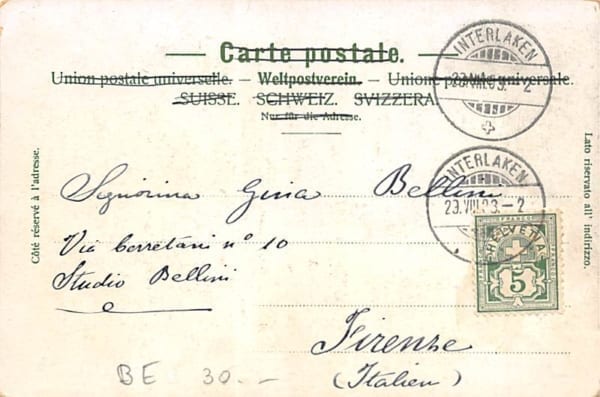 Carte postale.
Union postale universelle. – Weltpostverein. – Unione postale universale.
SUISSE. SCHWEIZ. SVIZZERA.
Nur für die Adresse.
INTERLAKEN
INTERLAKEN
23.VIII.03.–2
HELVETIA
5
Côté réservé à l'adresse.
Lato riservato all' indirizzo.
Signorina Gina Bellini
Via Cerretani n° 10
Studio Bellini
Firenze
(Italien)
BE 30.–